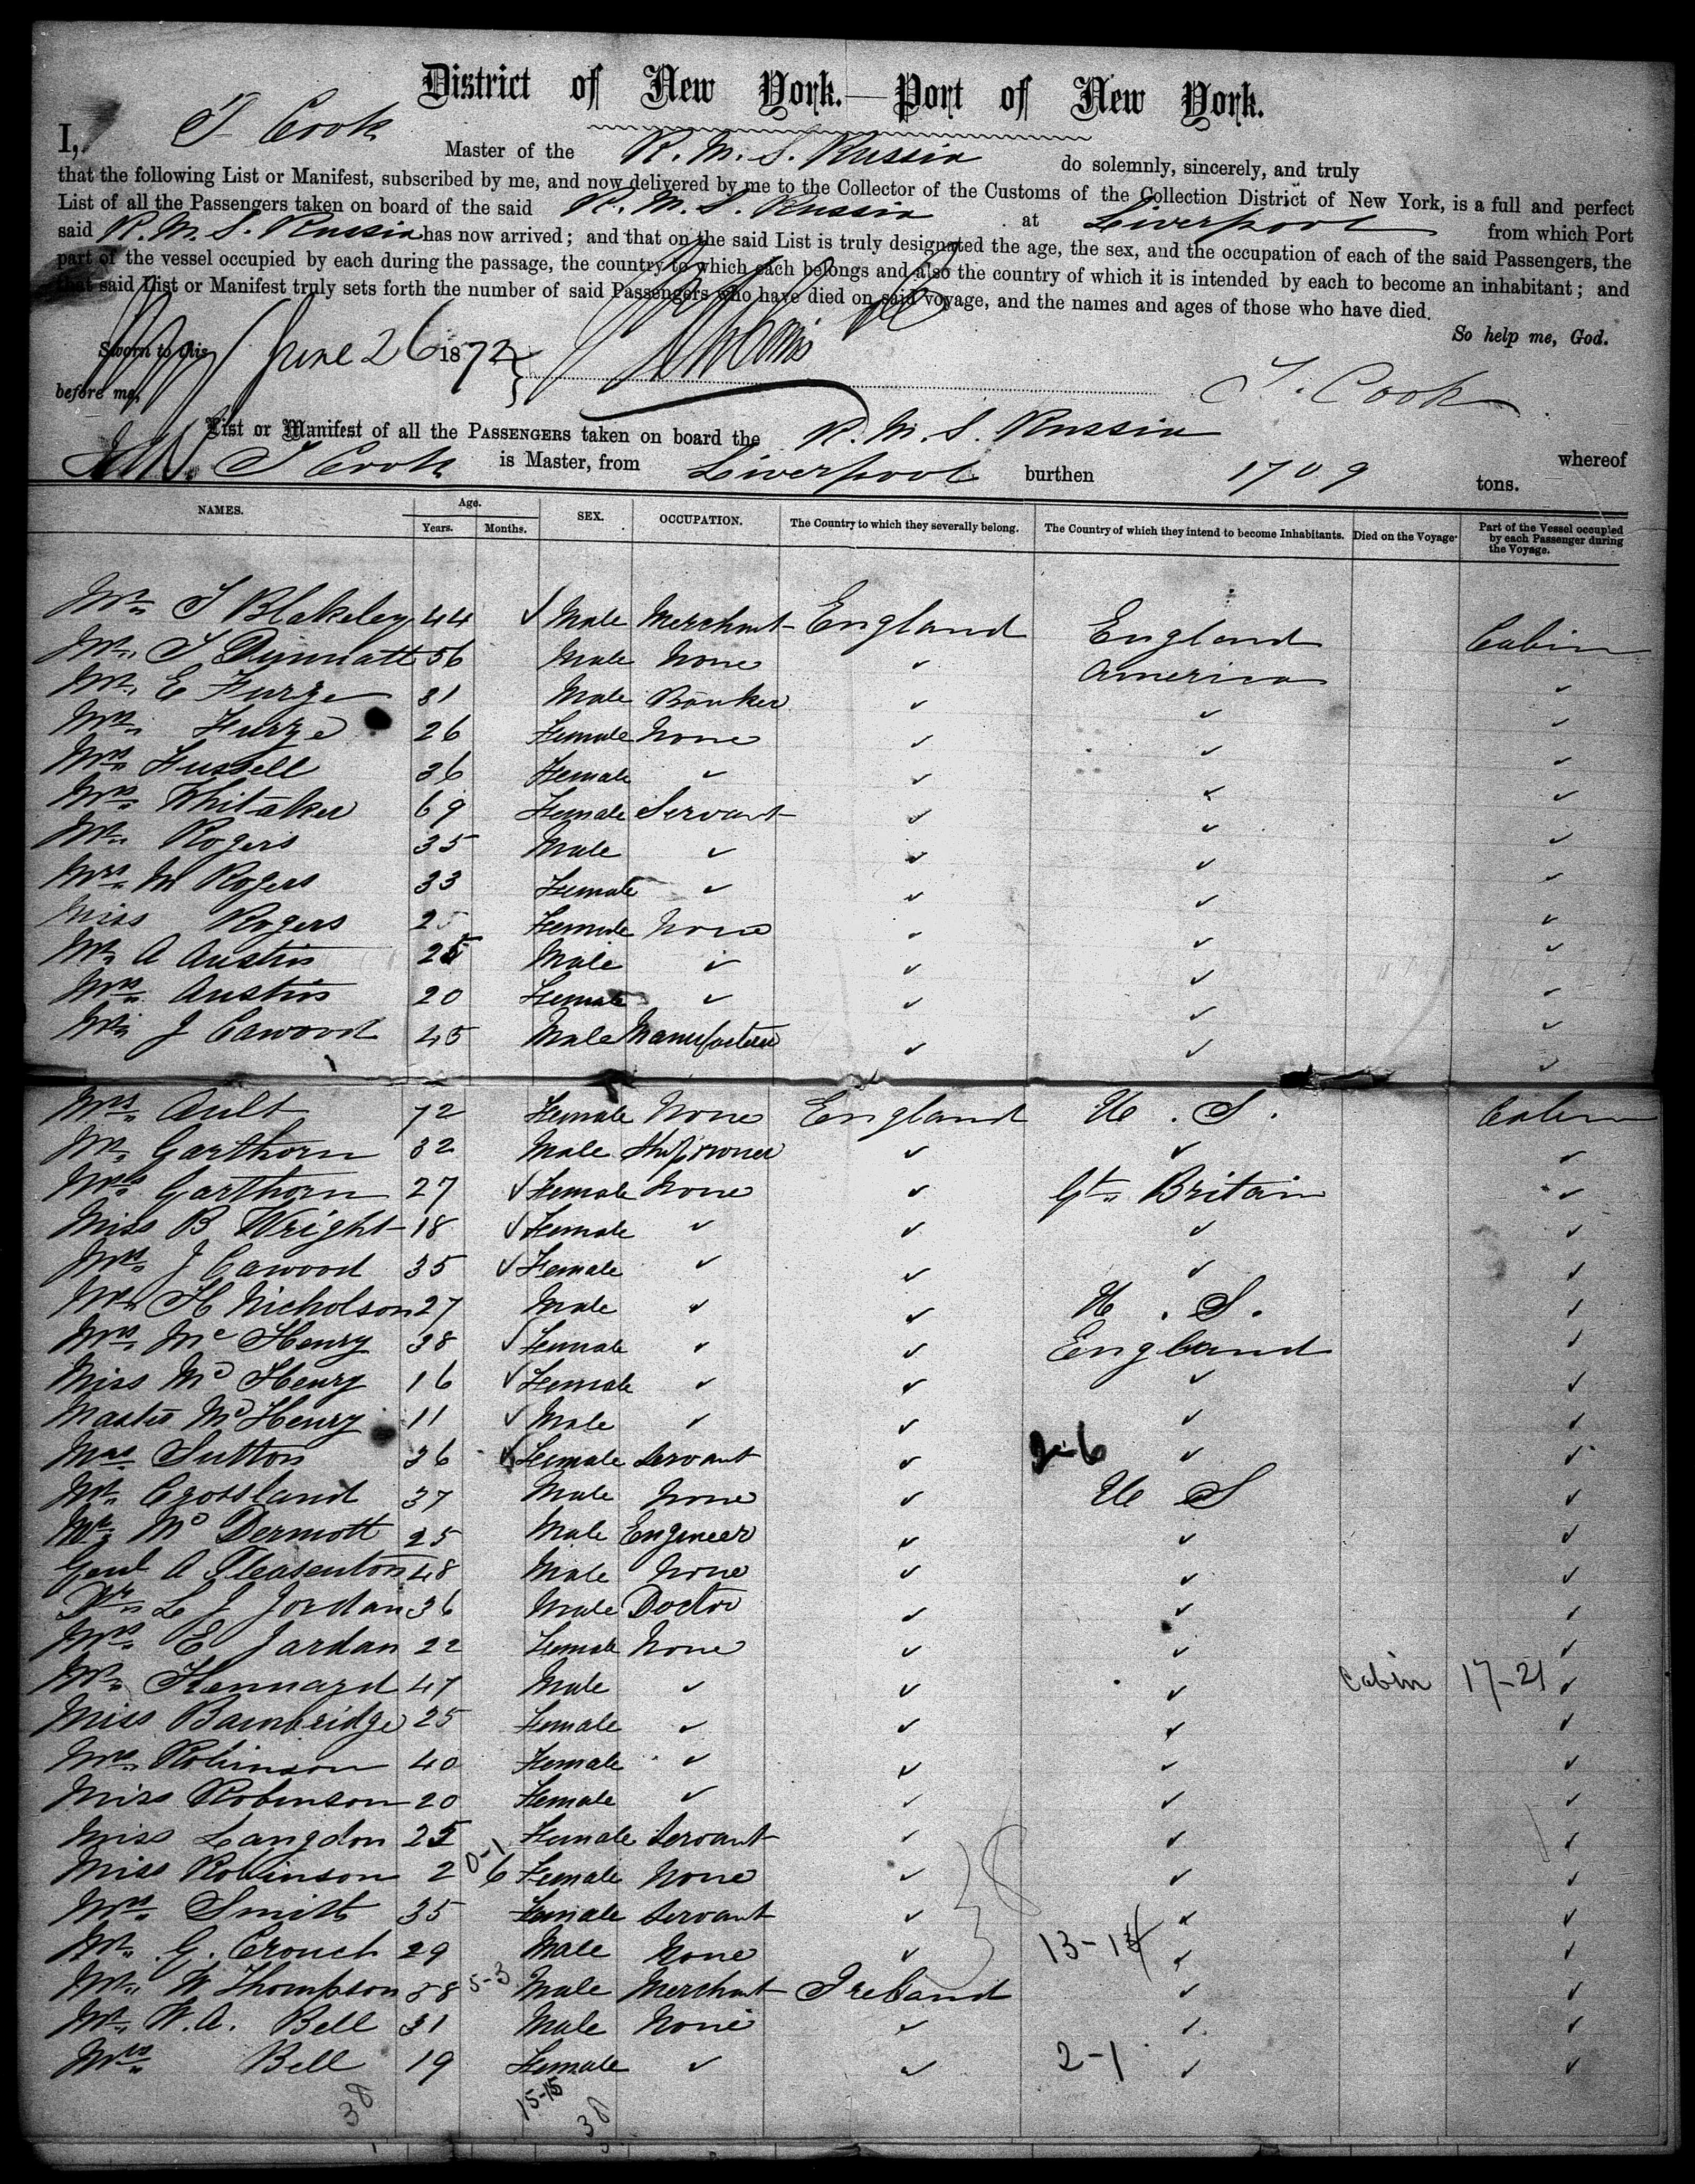 District of New York.—Port of New York.
I, T Cook Master of the R. M. S. Russia do solemnly, sincerely, and truly
that the following List or Manifest, subscribed by me, and now delivered by me to the Collector of the Customs of the Collection District of New York, is a full and perfect
List of all the Passengers taken on board of the said R. M. S. Russia at Liverpool from which Port
said R. M. S. Russia has now arrived; and that on the said List is truly designated the age, the sex, and the occupation of each of the said Passengers, the
part of the vessel occupied by each during the passage, the country to which each belongs and also the country of which it is intended by each to become an inhabitant; and
that said List or Manifest truly sets forth the number of said Passengers who have died on said voyage, and the names and ages of those who have died.
So help me, God.
Sworn to this June 26 1872
before me, T. Cook
List or Manifest of all the PASSENGERS taken on board the R. M. S. Russia whereof
T Cook is Master, from Liverpool burthen 1709 tons.
NAMES. Age. Years. Months. SEX. OCCUPATION. The Country to which they severally belong. The Country of which they intend to become Inhabitants. Died on the Voyage Part of the Vessel occupied by each Passenger during the Voyage.
Mr. T Blakeley 44 ✓ Male Merchant England England Cabin
Mr. T 56 Male None ✓ America ✓
Mr. E Furze 31 Male Banker ✓ ✓ ✓
Mrs. Furze 26 Female None ✓ ✓ ✓
Mrs. Fussell 36 Female ✓ ✓ ✓ ✓
Mrs. Whitaker 69 Female Servant ✓ ✓ ✓
Mr. Rogers 35 Male ✓ ✓ ✓ ✓
Mrs. M Rogers 33 Female ✓ ✓ ✓ ✓
Miss Rogers Female None ✓ ✓ ✓
Mr. A Austin 25 Male ✓ ✓ ✓ ✓
Mrs. Austin 20 Female ✓ ✓ ✓ ✓
Mr. J Cawood 45 Male Manufacturer ✓ ✓ ✓
Mrs. Ault 72 Female None England U. S. Cabin
Mr. Garthorn 32 Male Shipowner ✓ ✓ ✓
Mrs. Garthorn 27 ✓ Female None ✓ Gt. Britain ✓
Miss B Wright 18 ✓ Female ✓ ✓ ✓ ✓
Mrs. J Cawood 35 ✓ Female ✓ ✓ ✓ ✓
Mr. H Nicholson 27 Male ✓ ✓ U. S. ✓
Mrs. Mc Henry 38 ✓ Female ✓ ✓ England ✓
Miss Mc Henry 16 ✓ Female ✓ ✓ ✓ ✓
Master Mc Henry 11 ✓ Male ✓ ✓ ✓ ✓
Mrs. Sutton 36 ✓ Female Servant ✓ 2-6 ✓ ✓
Mr. Crossland 37 Male None ✓ U S ✓
Mr. Mc Dermott 25 Male Engineer ✓ ✓ ✓
Genl A Pleasenton 48 Male None ✓ ✓ ✓
Dr. L J Jordan 36 Male Doctor ✓ ✓ ✓
Mrs. E Jordan 22 Female None ✓ ✓ ✓
Mr. Kennard 47 Male ✓ ✓ ✓ Cabin 17-21 ✓
Miss Bainbridge 25 Female ✓ ✓ ✓ ✓
Mrs. Robinson 40 Female ✓ ✓ ✓ ✓
Miss Robinson 20 Female ✓ ✓ ✓ ✓
Miss Langdon 25 Female Servant ✓ ✓ ✓
Miss Robinson 2 0-1 6 Female None ✓ ✓ ✓
Mrs. Smith 35 Female Servant ✓ 38 ✓ ✓
Mr. G. Crouch 29 Male None ✓ 13-14 ✓ ✓
Mr. W Thompson 58 5-3 Male Merchant Ireland ✓ ✓
Mr. W. A. Bell 31 Male None ✓ ✓ ✓
Mrs. Bell 19 Female ✓ ✓ 2-1 ✓ ✓
38 15-15 38